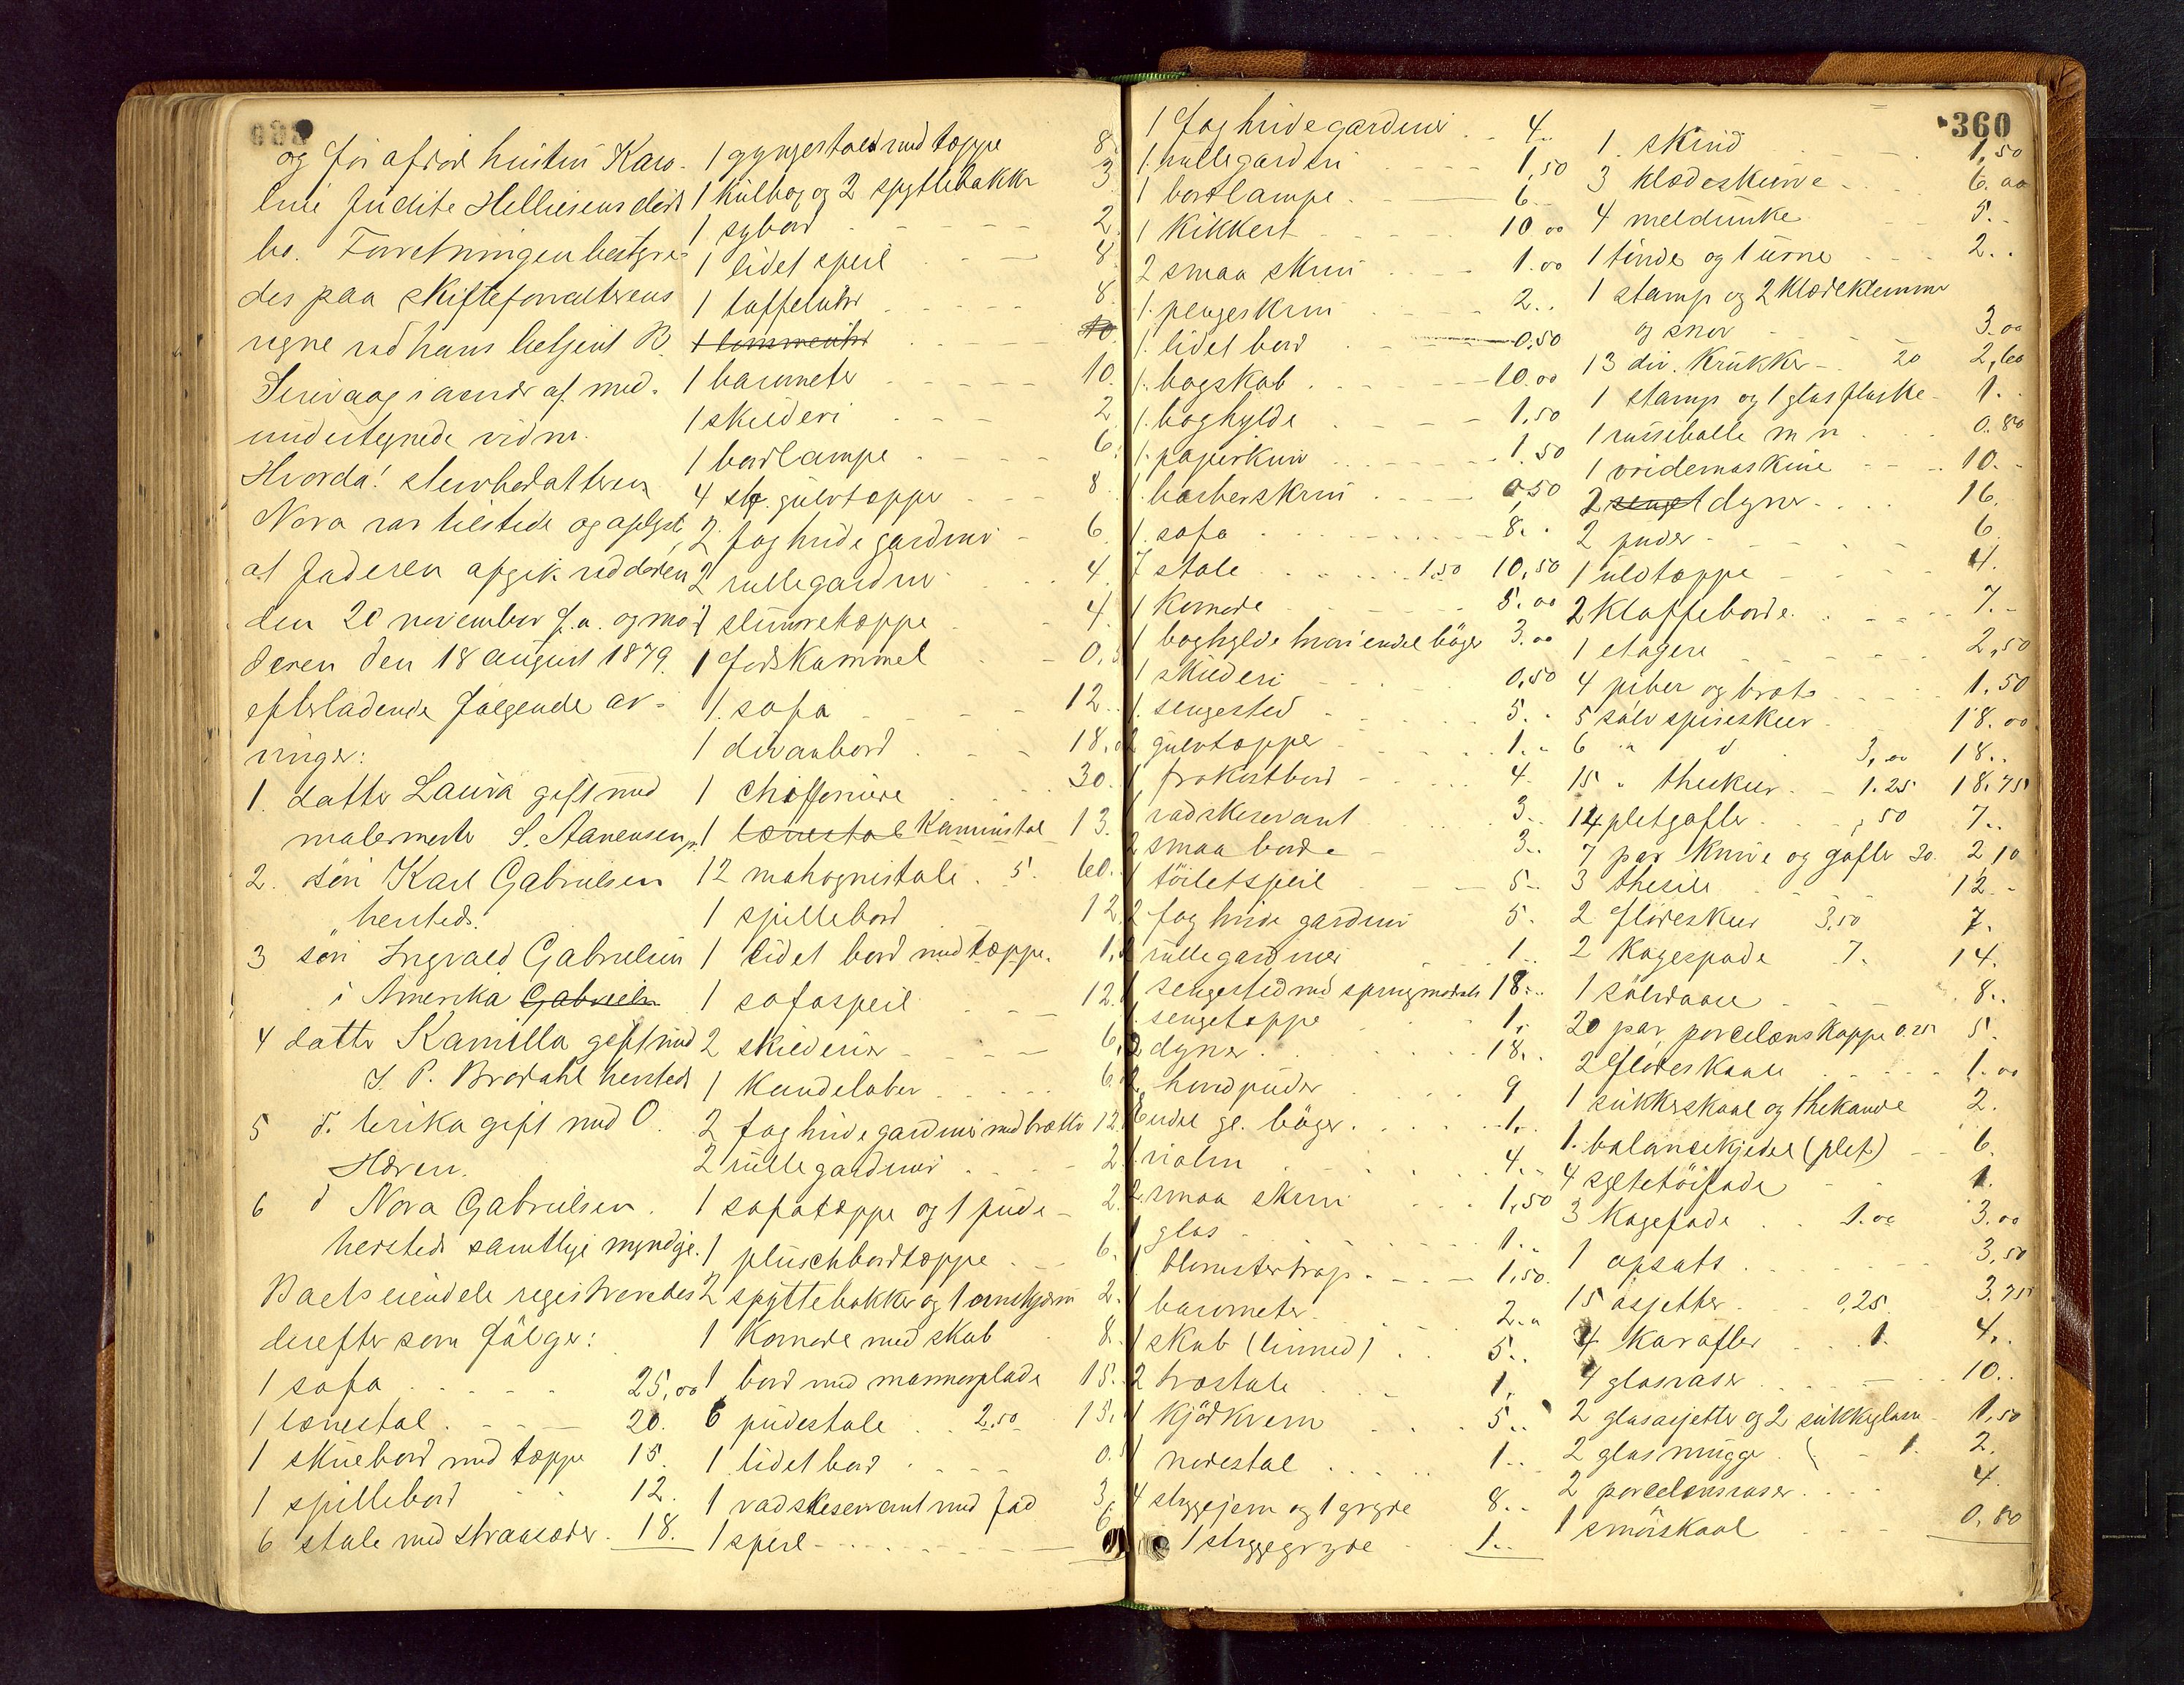 og før afdøde hustru Karo-
line Judite Helliesens døds
bo. Forretningen bestyre-
des paa skifteforvalterens
vegne ved hans betjent B.
af med-
undertegnede vidner.
Hvorda! stervbodatteren
Nora var tilstede og oplyste,
at faderen afgik ved døden
den 20 november f.a. og mo-
deren den 18 august 1879.
efterladende følgende ar-
vinger:
1. datter Laura gift med
malermester S. Aanensen,
2. søn Karl Gabrielsen
hersteds.
3 søn Ingvald Gabrielsen
i Amerika Gabrielsen
4 datter Kamilla gift med
J. P. Brodahl hersteds
5 d. Erika gift med O.
Hæren.
6 d Nora Gabrielsen.
hersteds samtlige myndige.
Boets eiendele registreredes
derefter som følger:
1 sofa 25,00
1 lænestol 20.
1 skuebord med tæppe 15.
1 spillebord 12.
6 stole med straasæder 18.
1 gyngestol med tæppe 8
1 kulbox og 2 spyttebakke 3
1 sybord 2
1 lidet speil 8
1 taffeluhr 8.
1 lommeuhr 10
1 barometer 10.
1 skilderi 2
1 bordlampe 6.
4 stk. gulvtæppe 8
2 fag hvide gardiner 6
2 rullegardiner 4
1 slumretæppe 4
1 fodskammel 0,
1. sofa 12.
1 divanbord 18,
1 chiffoniere 30.
1 lænestol Kaminstol 13.
12 mahognistole 5. 60.
1 spillebord 12
1 lidet bord med tæppe. 1,
1 sofaspeil 12
2 skilderier 6,
1 Kandelaber 6.
2 fag hvide gardiner med brætter 12.
2 rullegardiner 2
1 sofatæppe og 1 pude 2
1 pluschbordtæppe 6.
2 spyttebakker og 1 ovnskjærm 2.
1 Komode med skab 8.
1 bord med marmorplade 15.
6 pudestole 2.50 15.
1 lidet bord 0.
1 vadskeservant med fad 3,
1 speil 6
360
1 fag hvide gardiner 4..
1. rullegardin 1,50
1 bordlampe 6..
1 Kikkert 10.00
2 smaa skrin 1.00
1. pengeskrin 2..
1. lidet bord 0,50
1. bogskab 10.00
1. boghylde 1,50
1. papirkurv 1.50
1. barberskrin 0,50
1. sofa 8..
7 stole 1.50 10,50
1 Komode 5.00
1 boghylde hvori endel bøger 3.00
1 skilderi 0,50
1. sengested 5..
2 gulvtæpper 1..
1 frokostbord 4.
1 vadskeservant 3..
2 smaa borde 3..
1 toiletspeil 5..
2 fag hvide gardiner 5.
2 rullegardiner 1..
1 sengested med springmadrats 18..
1. sengetæppe 1.
2 dyner 18..
2 hovedpuder 9
Endel gl. bøger 1.
1. violin 4..
2 smaa skrin 1,50
1 glas 1..
1. blomstertrap. 1,50.
1 barometer 2..
1 skab (linned) 5..
2 træstole 1.
1 kjødkvern 5..
1 nødestol 1..
4 strygejern og 1 gryde 8..
1 strygegryde 1..
1. skrid 1,50
3 klædeskurve 6.00
4 meldunke 5..
1 tønde og 1 urne 2..
1 stamp og 2 klædeklemmer
og snor 3.00
13 div. Krukker 20 2,60
1 stamp og 1 glasflaske 1..
1 m n 0.80
1 vridemaskine 10..
2 senget dyner 16.
2 puder 6.
1 uldtæppe 4.
2 Klaffeborde. 7..
1 etagere 2,50
4 piber og bræt 1.50
5 sølvspiseskeer 18.00
6 " d 3,00 18..
15 " theskeer 1.25 18.75
14 pletgafler ,50 7..
7 par knive og gafler 30. 2,10
3 thesiler 12..
2 flødeskeer 3,50 7.
2 Kagespade 7. 14.
1 sølvskaal 8..
20 par porcelænskoppe 0.25 5.
2 flødeskaale 1.00
1 sukkerskaal og thekande 2.
1. balansekjedel (plet) 6.
4 syltetøifade 1.
3 Kagefade 1.00 3.00
1 opsats 3,50
15 asjetter 0,25 3.75
4 Karafler 1. 4..
4 glasvaser 10..
2 glasasjetter og 2 sukkerglass 1,50
2 glasmugge 1. 2.
2 porcelænsvaser 4.
1 smørskaal 0,80